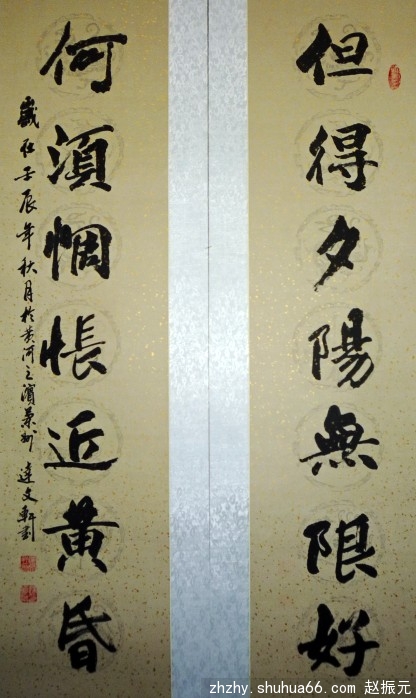 但得夕陽無限好
何須惆悵近黄昏
歲在壬辰年秋月於黄河之濱 達文軒
zhzhy.shuhua66.com 赵振元